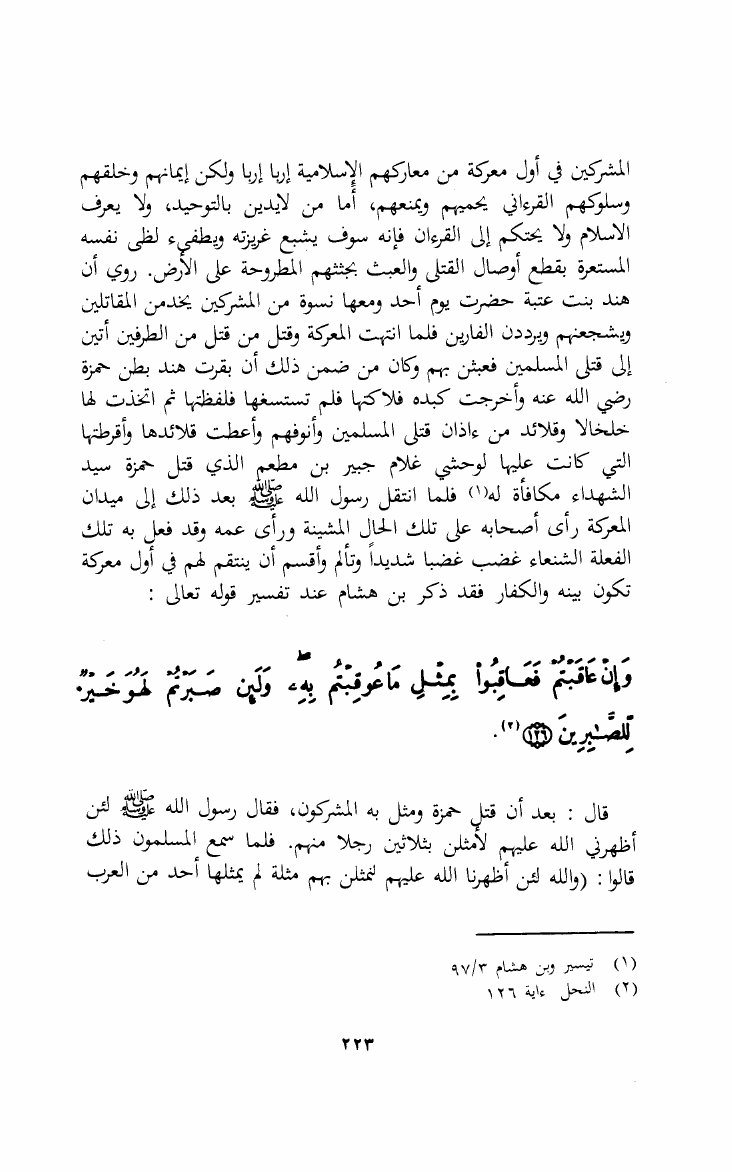 المشركين في أول معركة من معاركهم الإسلامية إربا إربا ولكن إيمانهم وخلقهم
وسلوكهم القرءاني يحميهم ويمنعهم، أما من لايدين بالتوحيد، ولا يعرف
الاسلام ولا يحتكم إلى القرءان فإنه سوف يشبع غريزته ويطفيء لظى نفسه
المستعرة بقطع أوصال القتلى والعبث بجثثهم المطروحة على الأرض. روي أن
هند بنت عتبة حضرت يوم أحد ومعها نسوة من المشركين يخدمن المقاتلين
ويشجعنهم ويرددن الفارين فلما انتهت المعركة وقتل من قتل من الطرفين أتين
إلى قتلى المسلمين فعبثن بهم وكان من ضمن ذلك أن بقرت هند بطن حمزة
رضي الله عنه وأخرجت كبده فلاكتها فلم تستسغها فلفظتها ثم اتخذت لها
خلخالا وقلائد من ءاذان قتلى المسلمين وأنوفهم وأعطت قلائدها وأقرطتها
التي كانت عليها لوحشي غلام جبير بن مطعم الذي قتل حمزة سيد
الشهداء مكافأة له(١) فلما انتقل رسول الله ﷺ بعد ذلك إلى ميدان
المعركة رأى أصحابه على تلك الحال المشينة ورأى عمه وقد فعل به تلك
الفعلة الشنعاء غضب غضبا شديداً وتألم وأقسم أن ينتقم لهم في أول معركة
تكون بينه والكفار فقد ذكر بن هشام عند تفسير قوله تعالى :
وَإِنْ عَاقَبْتُمْ فَعَاقِبُواْ بِمِثْلِ مَا عُوقِبْتُم بِهِۦ ۖ وَلَئِن صَبَرْتُمْ لَهُوَ خَيْرٌ
لِّلصَّـٰبِرِينَ ١٢٦ (٢).
قال : بعد أن قتل حمزة ومثل به المشركون، فقال رسول الله ﷺ لئن
أظهرني الله عليهم لأمثلن بثلاثين رجلا منهم. فلما سمع المسلمون ذلك
قالوا : (والله لئن أظهرنا الله عليهم لنمثلن بهم مثلة لم يمثلها أحد من العرب
(١) تيسير وبن هشام ٩٧/٣
(٢) النحل ءاية ١٢٦
٢٢٣